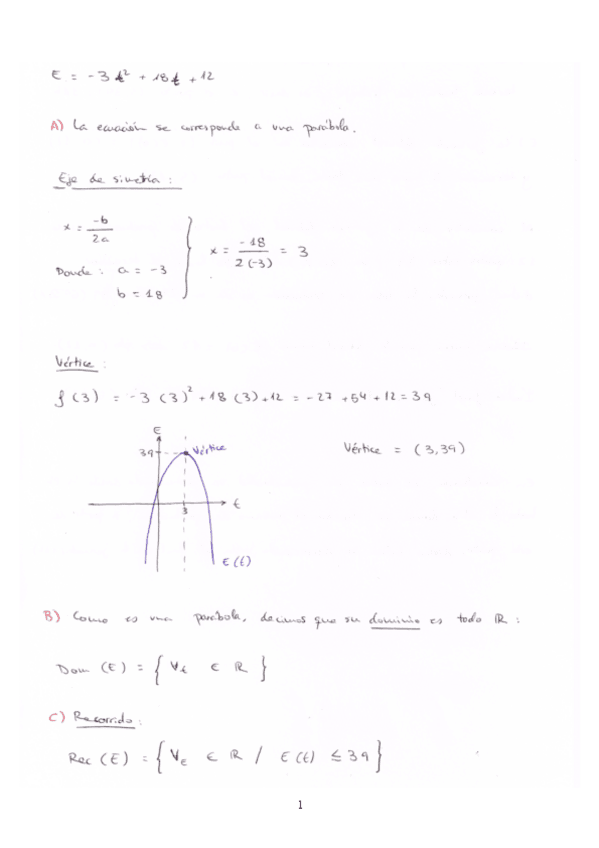 E = -3t² + 18t + 12
A) La ecuación se corresponde a una parábola.
Eje de simetría :
x = -b / 2a
Donde : a = -3
b = 18
x = -18 / 2(-3) = 3
Vértice :
f(3) = -3(3)² + 18(3) + 12 = -27 + 54 + 12 = 39
E
39
Vértice
Vértice = (3,39)
t
3
E(t)
B) Como es una parábola, decimos que su dominio es todo ℝ :
Dom (E) = { ∀t ∈ ℝ }
C) Recorrido :
Rec (E) = { ∀E ∈ ℝ / E(t) ≤ 39 }
1